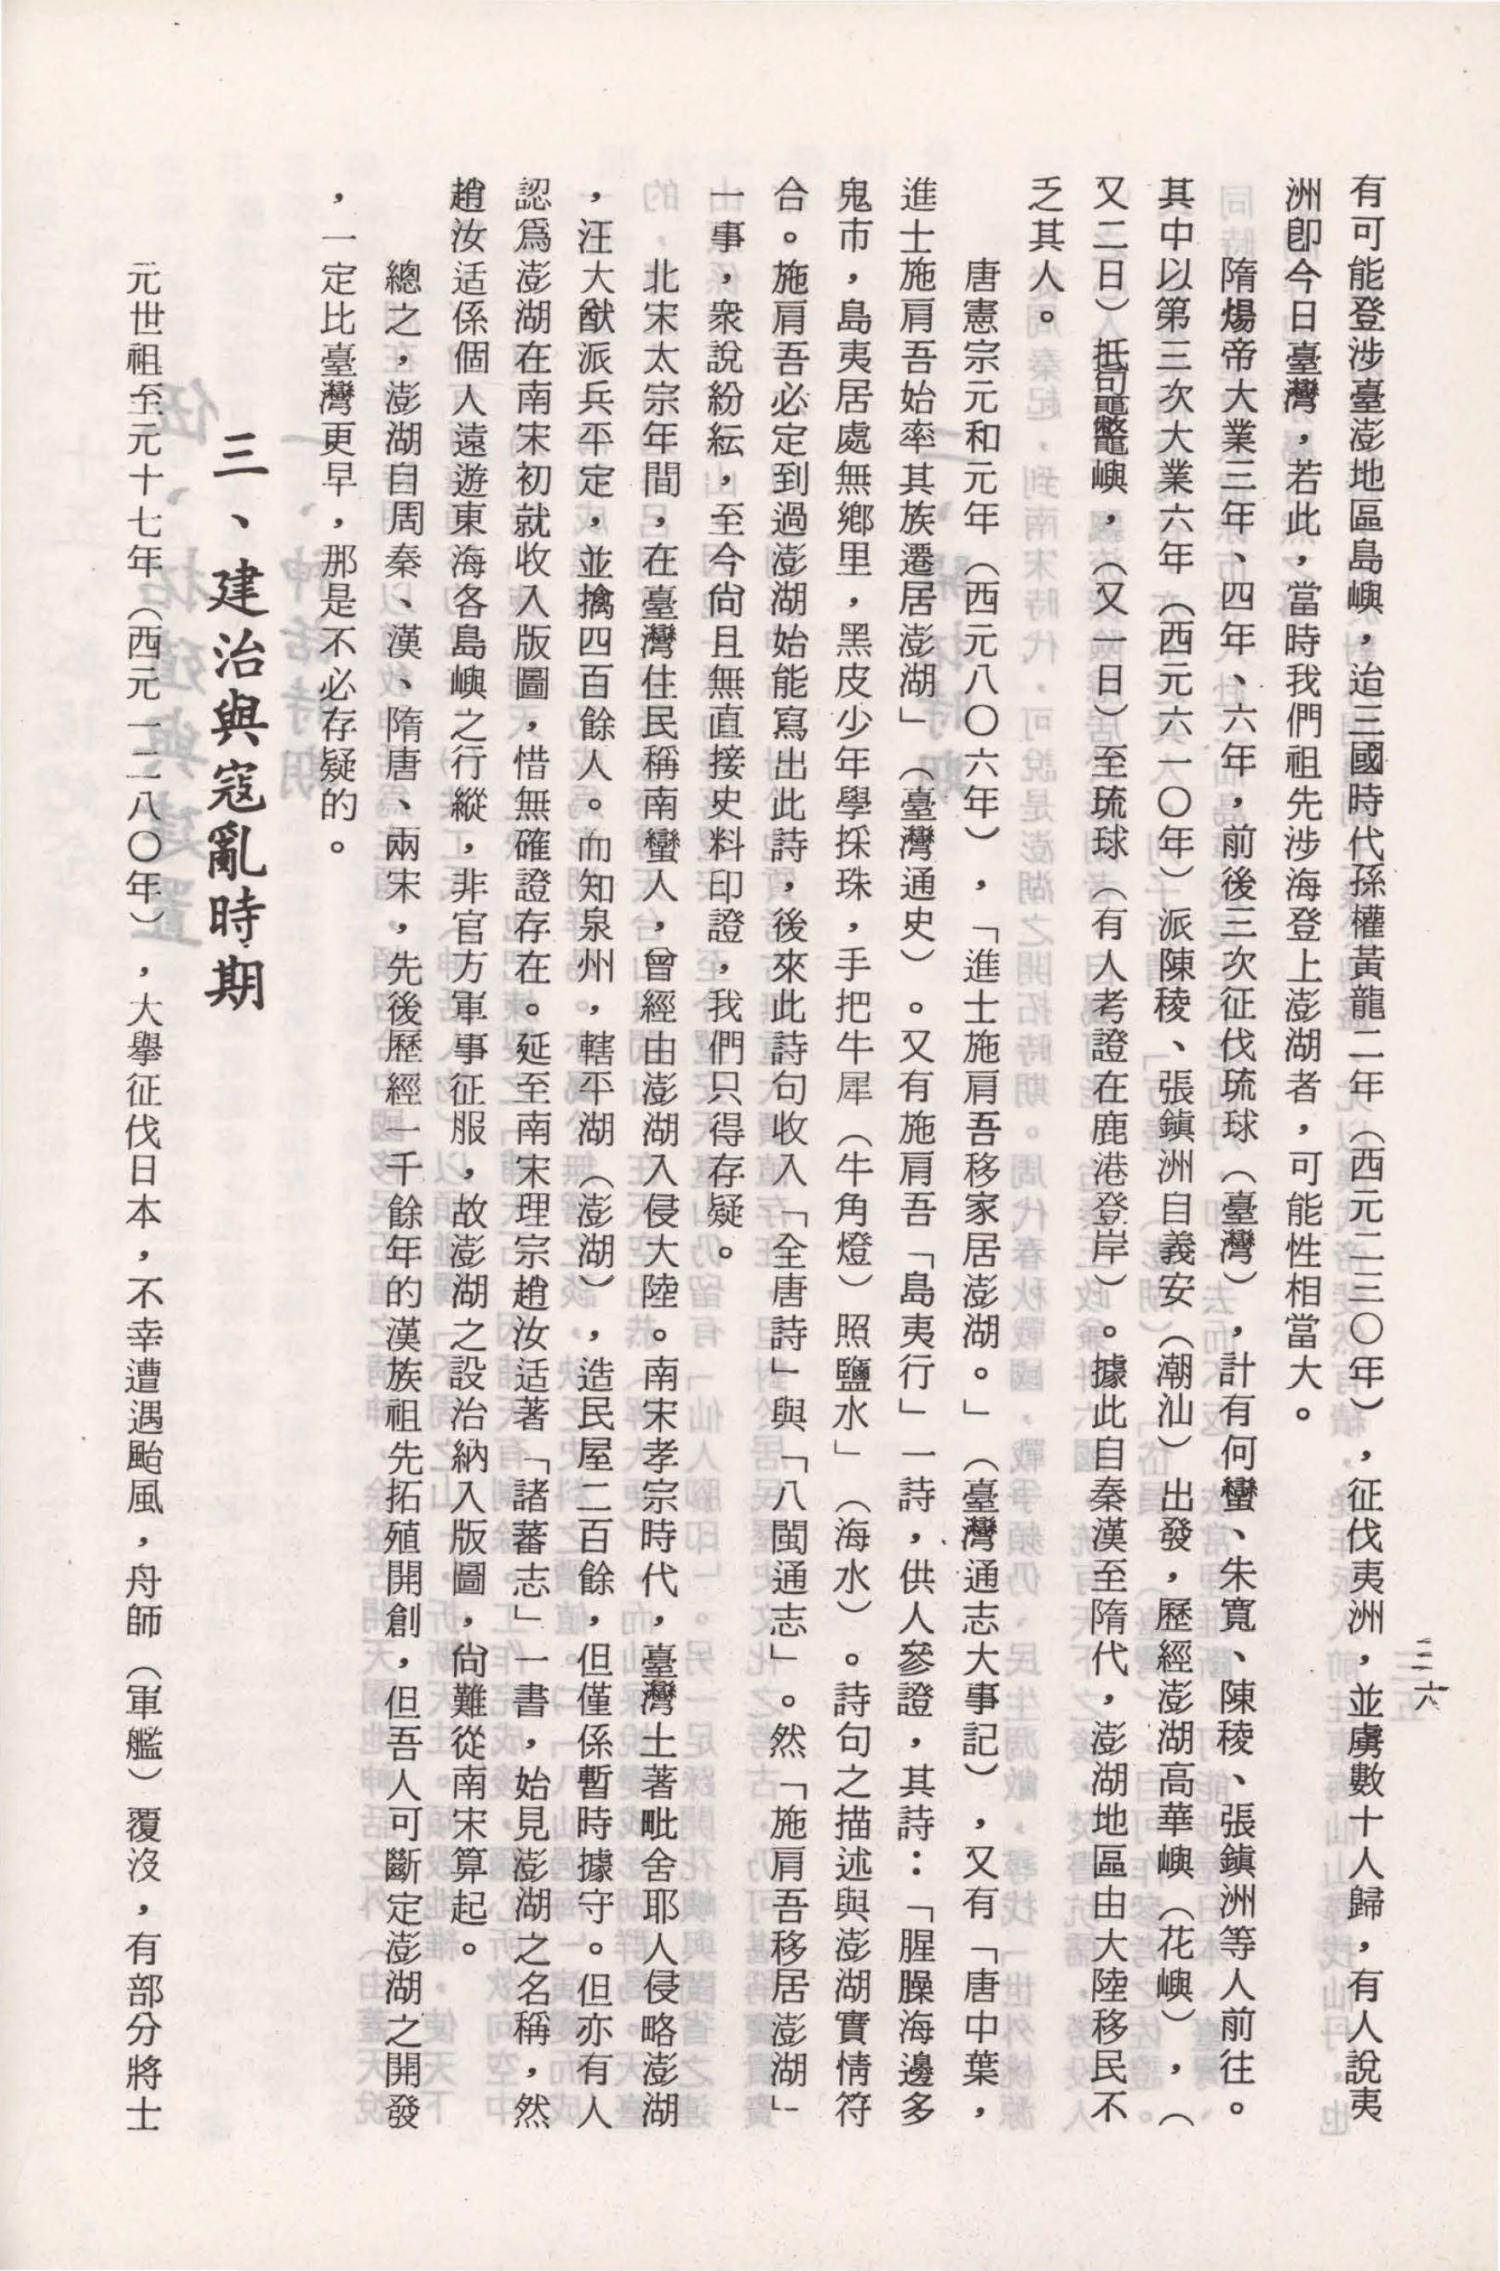 二六
有可能登涉臺澎地區島嶼，迨三國時代孫權黃龍二年（西元二三〇年），征伐夷洲，並虜數十人歸，有人說夷
洲卽今日臺灣，若此，當時我們祖先涉海登上澎湖者，可能性相當大。
隋煬帝大業三年、四年、六年，前後三次征伐琉球（臺灣），計有何蠻、朱寬、陳稜、張鎮洲等人前往。
其中以第三次大業六年（西元六一〇年）派陳稜、張鎮洲自義安（潮汕）出發，歷經澎湖高華嶼（花嶼），（
又二日）抵𪓟鼊嶼，（又一日）至琉球（有人考證在鹿港登岸）。據此自秦漢至隋代，澎湖地區由大陸移民不
乏其人。
唐憲宗元和元年（西元八〇六年），「進士施肩吾移家居澎湖。」（臺灣通志大事記），又有「唐中葉，
進士施肩吾始率其族遷居澎湖」（臺灣通史）。又有施肩吾「島夷行」一詩，供人參證，其詩：「腥臊海邊多
鬼市，島夷居處無鄉里，黑皮少年學採珠，手把牛犀（牛角燈）照鹽水」（海水）。詩句之描述與澎湖實情符
合。施肩吾必定到過澎湖始能寫出此詩，後來此詩句收入「全唐詩」與「八閩通志」。然「施肩吾移居澎湖」
一事，衆說紛紜，至今尙且無直接史料印證，我們只得存疑。
北宋太宗年間，在臺灣住民稱南蠻人，曾經由澎湖入侵大陸。南宋孝宗時代，臺灣土著毗舍耶人侵略澎湖
，汪大猷派兵平定，並擒四百餘人。而知泉州，轄平湖（澎湖），造民屋二百餘，但僅係暫時據守。但亦有人
認爲澎湖在南宋初就收入版圖，惜無確證存在。延至南宋理宗趙汝适著「諸蕃志」一書，始見澎湖之名稱，然
趙汝适係個人遠遊東海各島嶼之行縱，非官方軍事征服，故澎湖之設治納入版圖，尙難從南宋算起。
總之，澎湖自周秦、漢、隋唐、兩宋，先後歷經一千餘年的漢族祖先拓殖開創，但吾人可斷定澎湖之開發
，一定比臺灣更早，那是不必存疑的。
三、建治與寇亂時期
元世祖至元十七年（西元一二八〇年），大擧征伐日本，不幸遭遇颱風，舟師（軍艦）覆沒，有部分將士